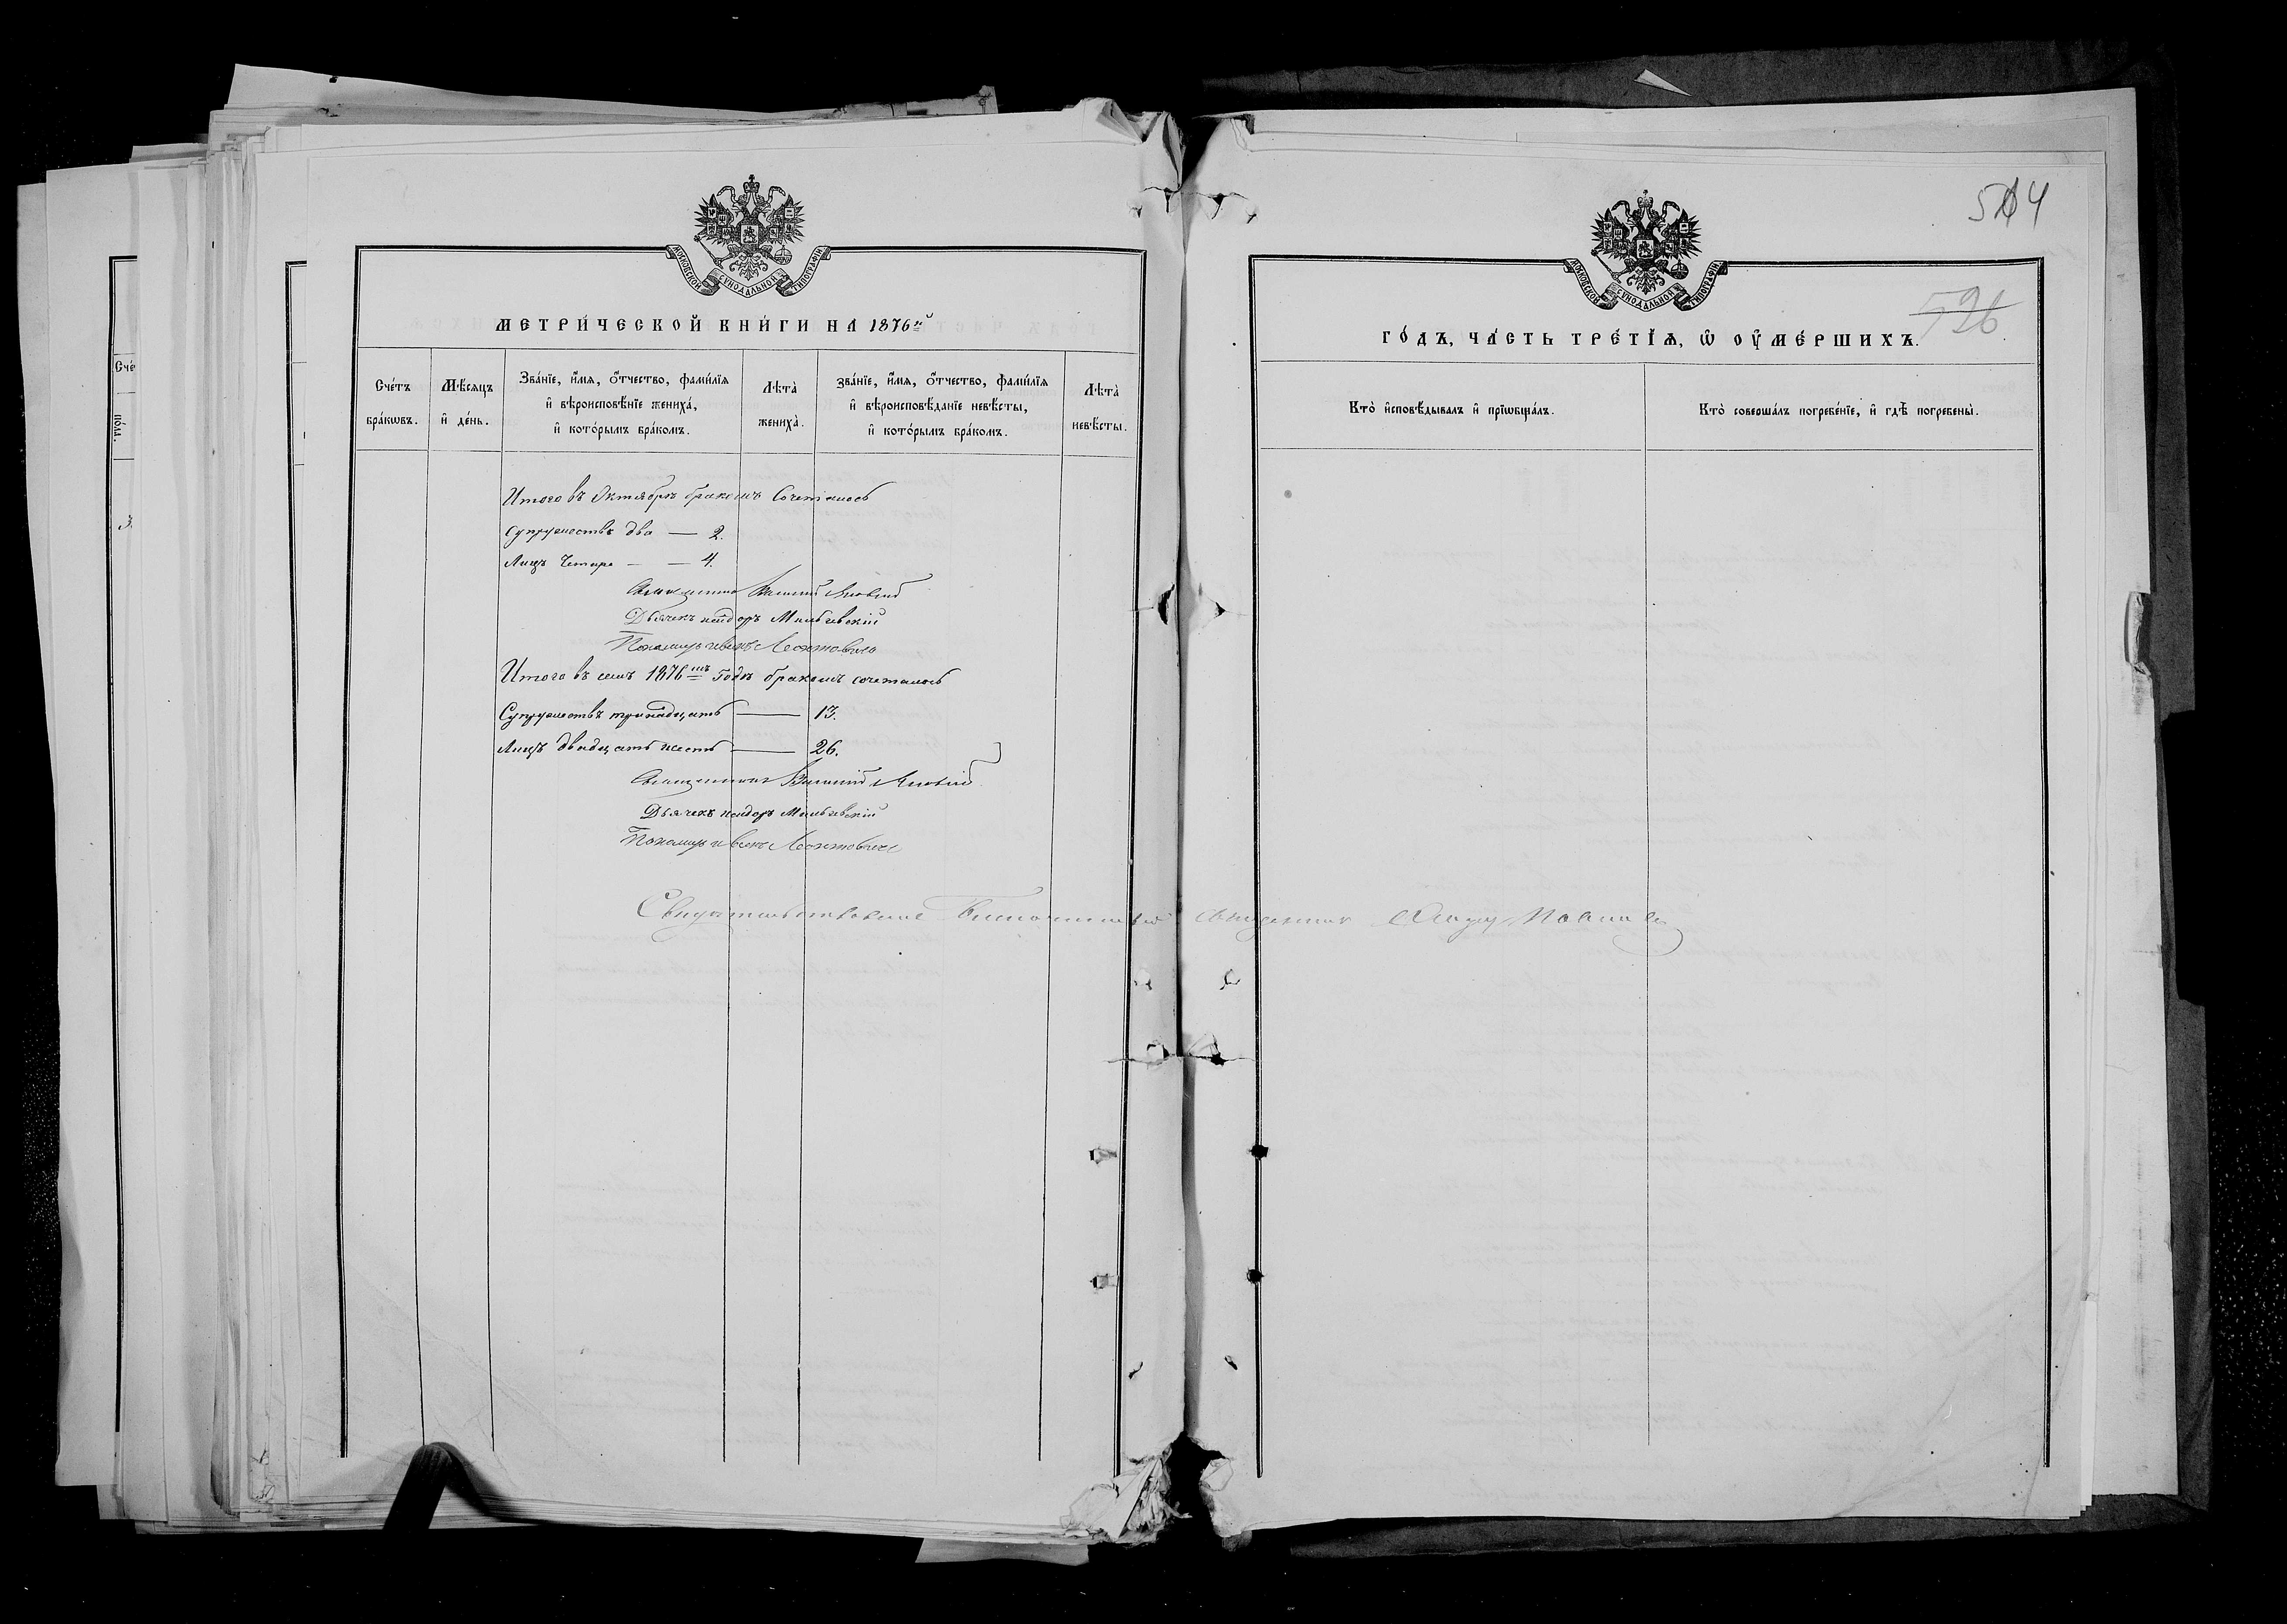 МОСКОВСКОЙ СѴНОДАЛЬНОЙ ТИПОГРАФІИ
МЕТРИ́ЧЕСКОЙ КНИ́ГИ НА 1876й
Сче́тъ бра́кѡвъ.
Мѣ́сяцъ и҆ де́нь.
Зва́нїе, и҆́мѧ, ѻ҆́тчество, фами́лїѧ и҆ вѣроисповѣ́нїе жениха̀, и҆ кото́рымъ бра́комъ.
Лѣта̀ жениха̀.
Зва́нїе, и҆́мѧ, ѻ҆́тчество, фами́лїѧ и҆ вѣроисповѣ́данїе невѣ́сты, и҆ кото́рымъ бра́комъ.
Лѣта̀ невѣ́сты.
Итого въ Октябрѣ бракомъ сочеталось
Супружествъ два — 2.
Лицъ Четыре — — 4.
Священникъ
Дьячекъ Исидоръ
Пономарь Леонтовичъ
Итого въ семъ 1876мъ годѣ бракомъ сочеталось
Супружествъ тринадцать — 13.
Лицъ двадцать шесть — 26.
Священникъ
Дьячекъ Исидоръ
Пономарь Леонтовичъ
Свидѣтельствовалъ Благочинный Священникъ
514
МОСКОВСКОЙ СѴНОДАЛЬНОЙ ТИПОГРАФІИ
526
ГО́ДЪ, ЧА́СТЬ ТРЕ́ТЇѦ, Ѡ҆ ОУ҆МЕ́РШИХЪ.
Кто̀ и҆сповѣ́дывалъ и҆ прїѡбща́лъ.
Кто̀ соверша́лъ погребе́нїе, и҆ гдѣ̀ погребены̀.
Сче́
3.